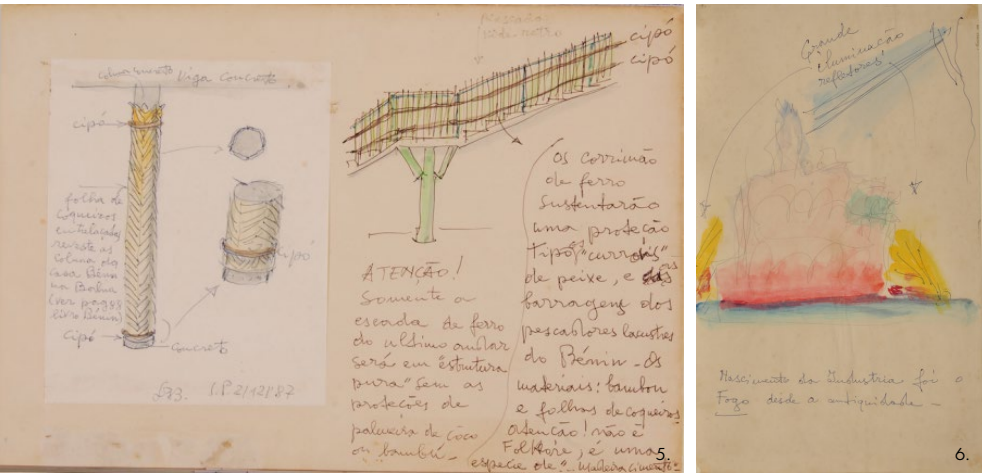 coluna concreto
Viga Concreto
cipó
folha de
coqueiros
entrelaçados
reveste as
coluna do
Casa Bénin
na Bahia
(ver pagg
livro Bénin)
cipó
cipó
Concreto
S.P. 2/12/87
cipó
cipó
ATENÇÃO!
Somente a
escada de ferro
do ultimo andar
será em "estrutura
pura" sem as
proteções de
palmeira de côco
ou bambú-
Os corrimão
de ferro
sustentarão
uma proteção
Tipo "currais"
de peixe, e das
barragens dos
pescadores lacustres
do Bénin - Os
materiais: bambou
e folhas de coqueiros
atenção! não é
Folklore, é uma
especie de "madeira cimento"
5.
Grande
iluminação
"refletores"
Nascimento da Industria foi o
Fogo desde a antiguidade -
6.